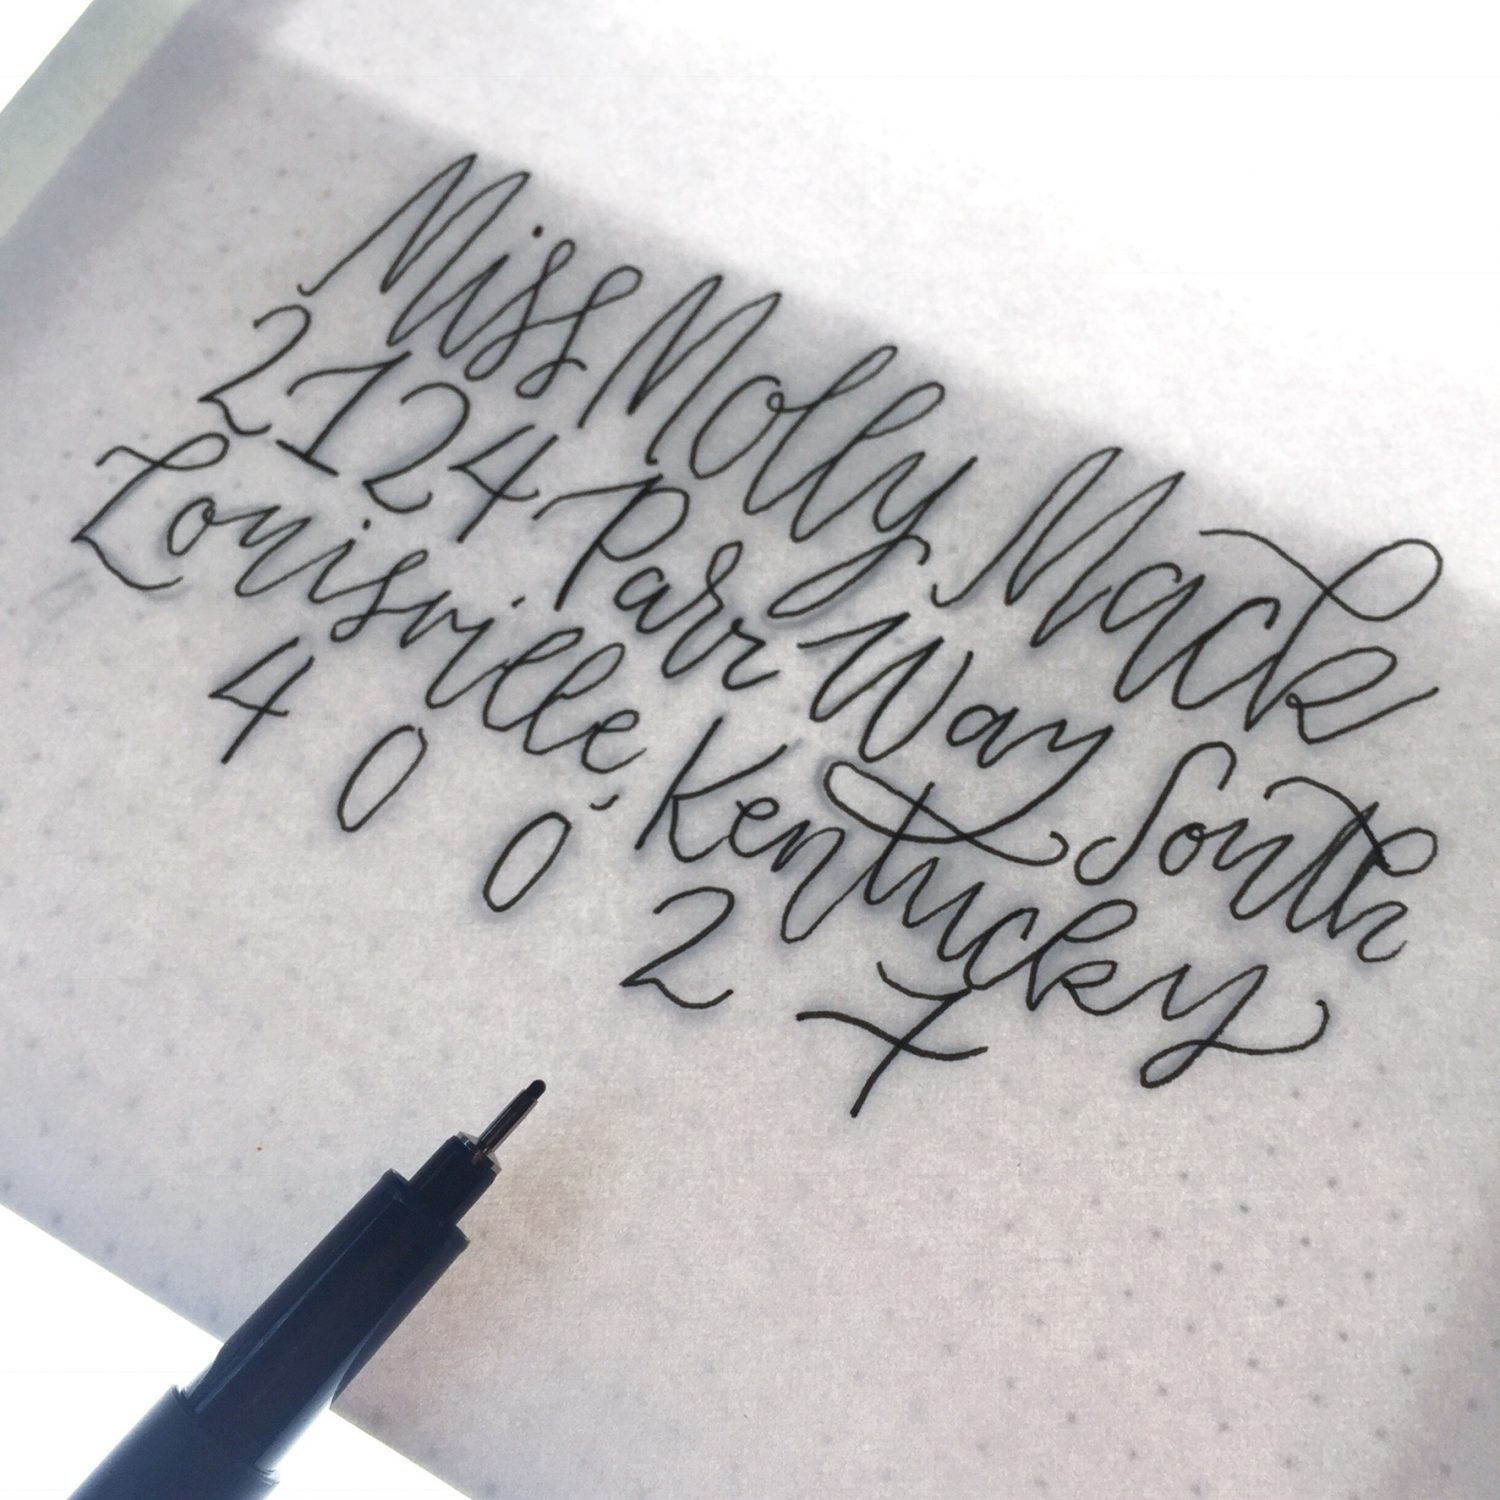 Miss Molly Mack
2124 Parr Way South
Louisville, Kentucky
4 0 0 2 7